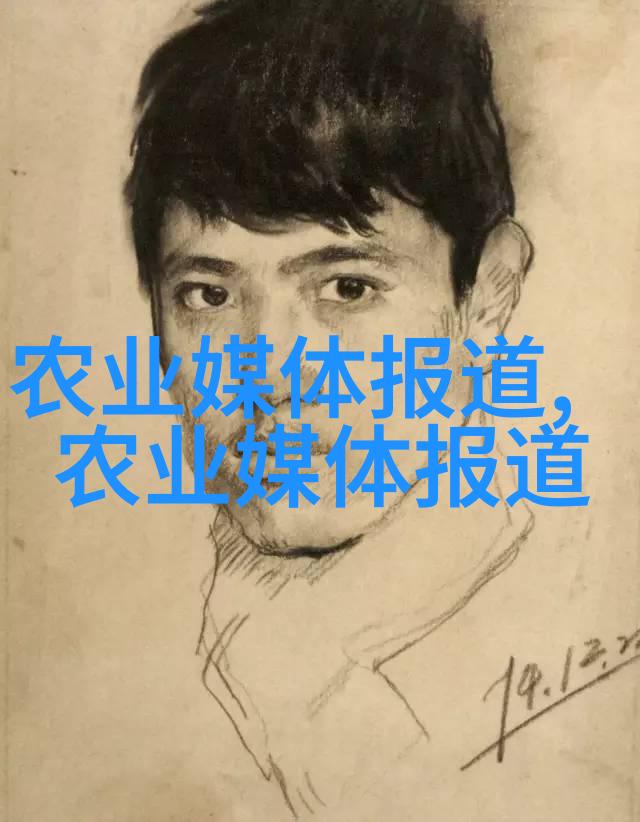 农业媒体报道,
农业媒体报道
14.12.2